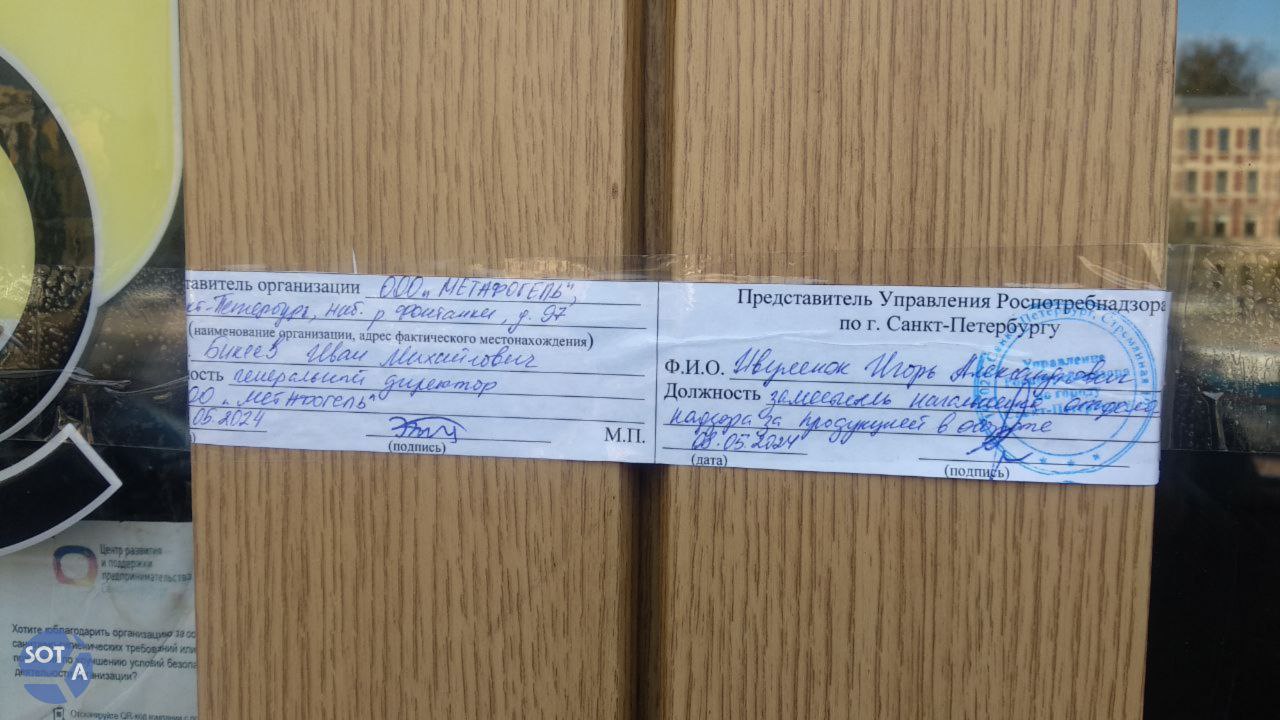 тавитель организации ООО „МЕТАФОГЕЛЬ",
кт-Петербург, наб. р. Фонтанки, д. 97
(наименование организации, адрес фактического местонахождения)
. Бикеев Иван Михайлович
ость генеральный директор
ОО „МЕТАФОГЕЛЬ"
.05.2024
(подпись)
М.П.
Представитель Управления Роспотребнадзора
по г. Санкт-Петербургу
Ф.И.О. Игорь Александрович
Должность заместитель начальника отдела
надзора за продукцией в обороте
08.05.2024
(дата)
(подпись)
Управления
Центр развития
и поддержки
предпринимательства
Хотите поблагодарить организацию за со
требований или
улучшению условий безопа
деятельности организации?
Отсканируйте QR-код
SOTA